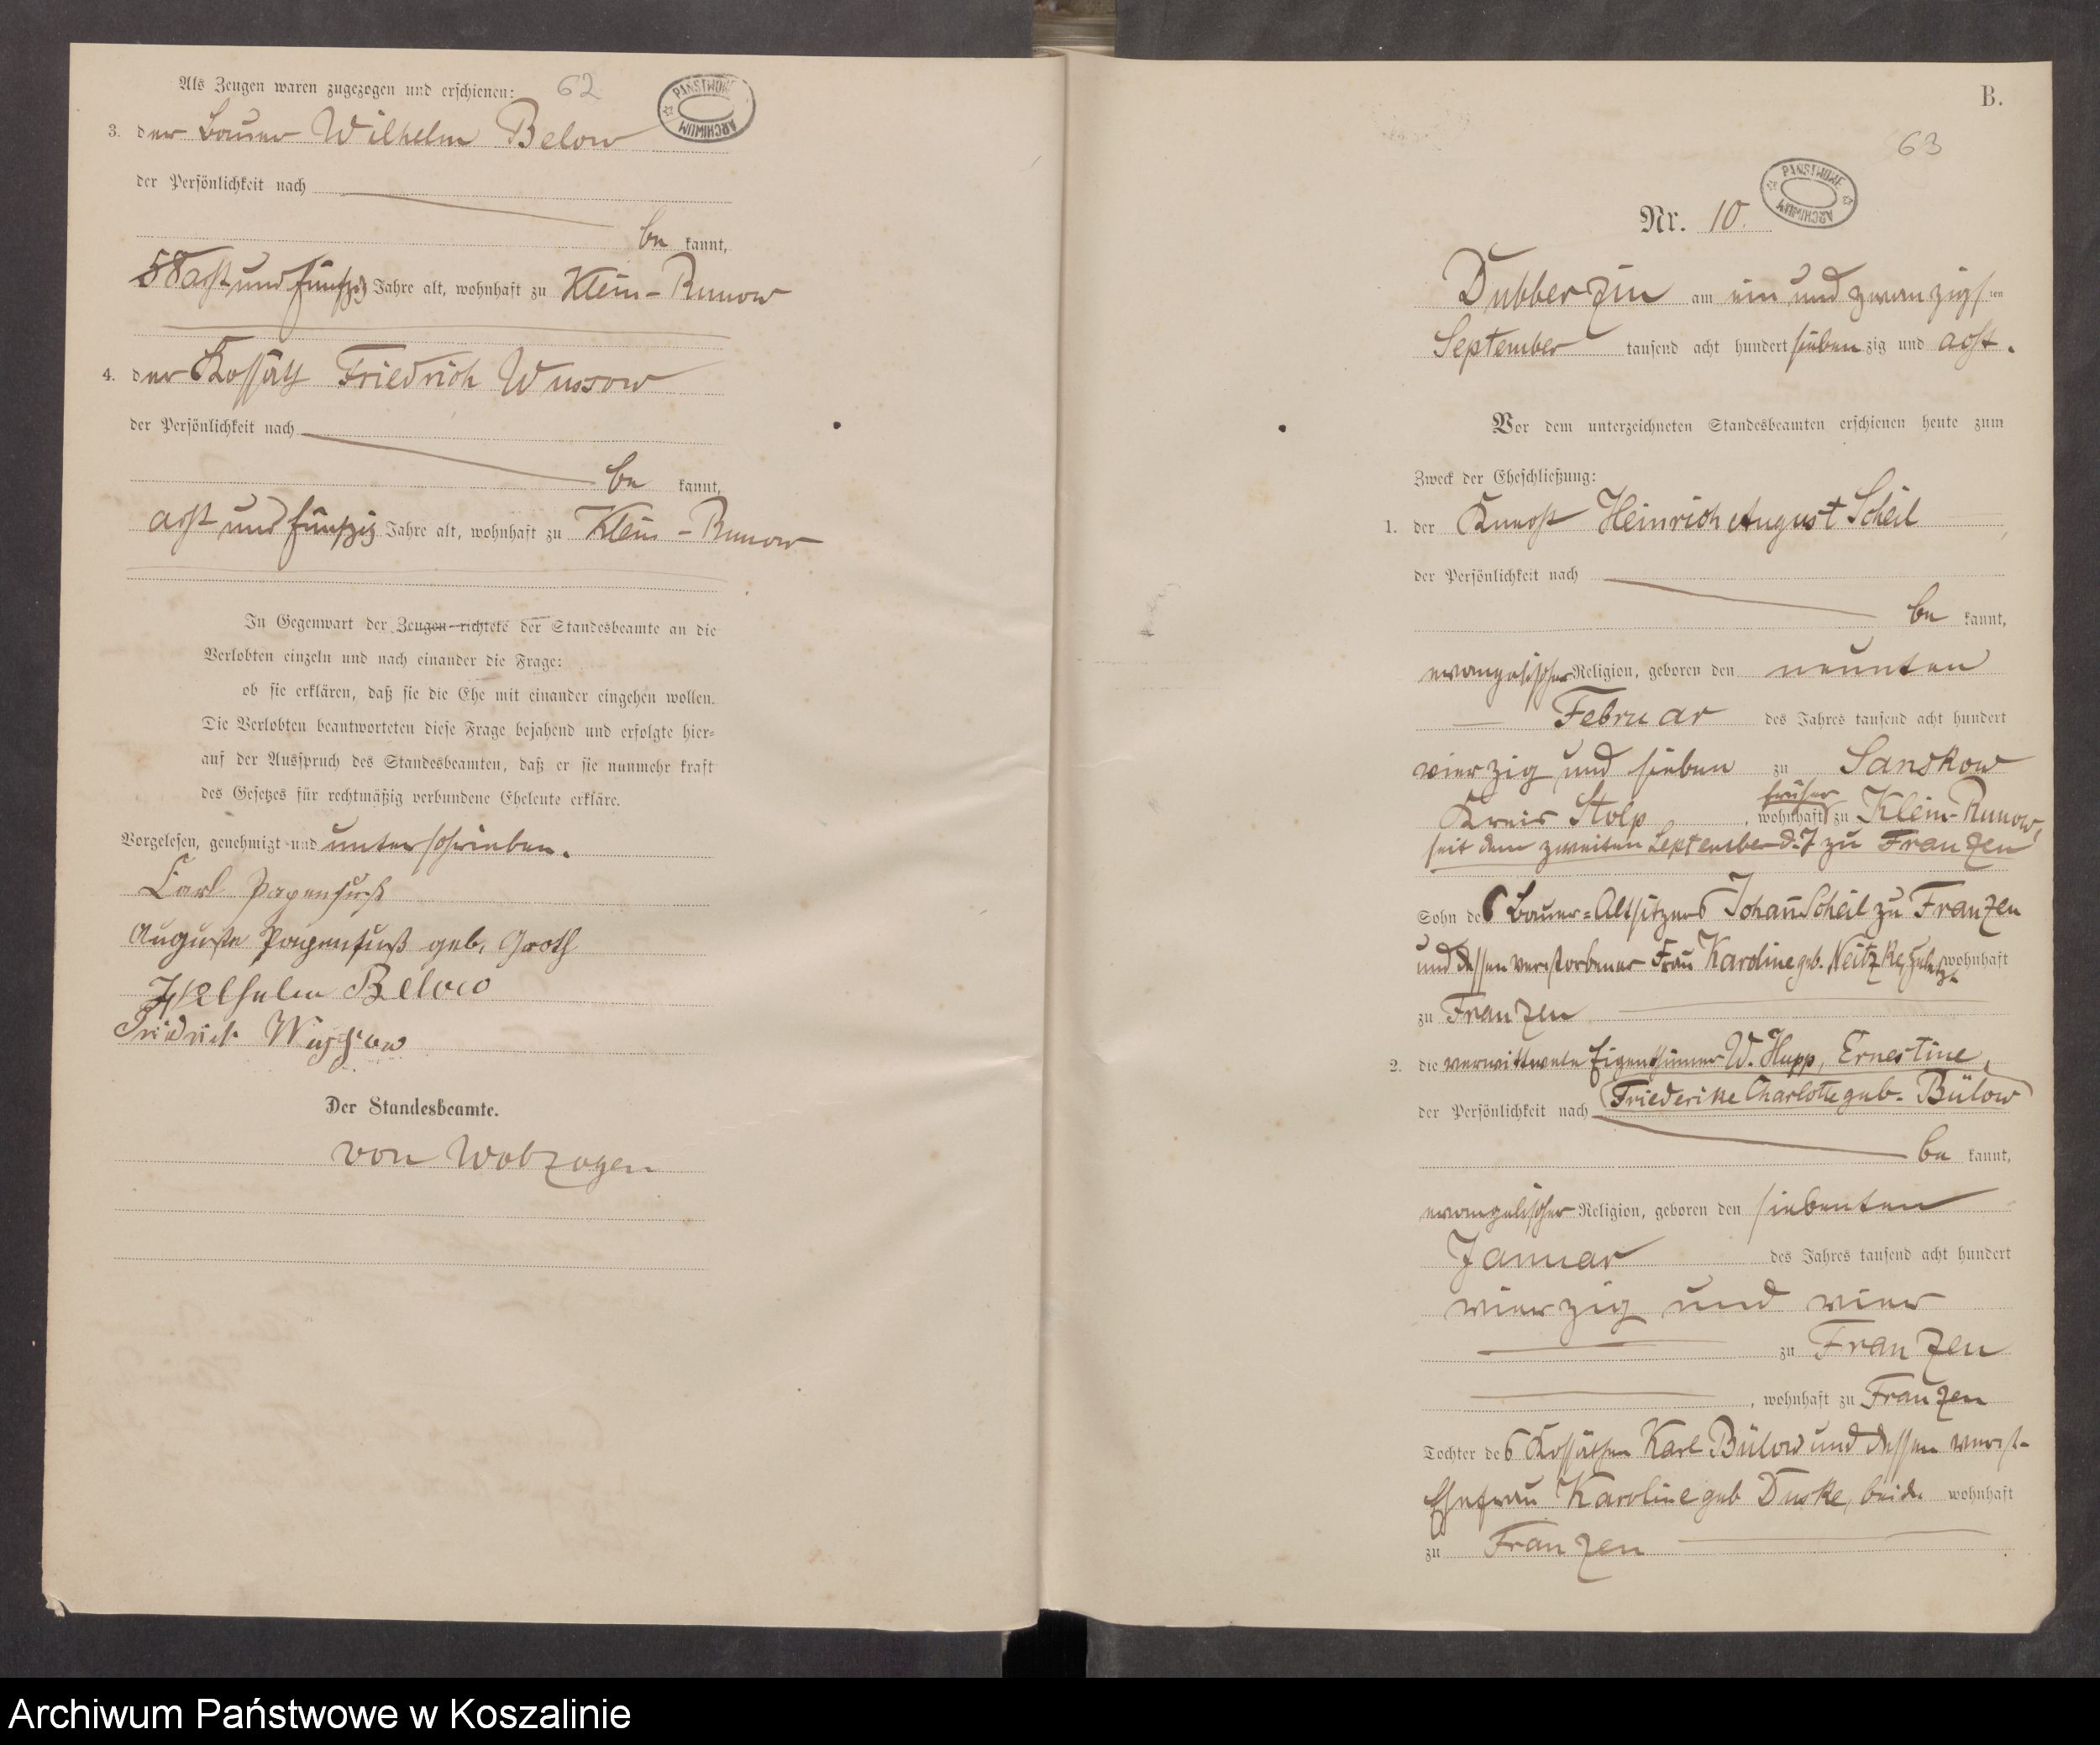 Als Zeugen waren zugezogen und erschienen: 62
PANSTWOWE ARCHIWUM
3. der Bauer Wilhelm Below
der Persönlichkeit nach
be kannt,
58 acht und fünfzig Jahre alt, wohnhaft zu Klein-Runow
4. der Kossäth Friedrich Wussow
der Persönlichkeit nach
be kannt,
acht und fünfzig Jahre alt, wohnhaft zu Klein-Runow
In Gegenwart der Zeugen richtete der Standesbeamte an die
Verlobten einzeln und nach einander die Frage:
ob sie erklären, daß sie die Ehe mit einander eingehen wollen.
Die Verlobten beantworteten diese Frage bejahend und erfolgte hier=
auf der Ausspruch des Standesbeamten, daß er sie nunmehr kraft
des Gesetzes für rechtmäßig verbundene Eheleute erkläre.
Vorgelesen, genehmigt und unterschrieben.
Carl Papenfuß
Auguste Papenfuß geb. Groth
Wilhelm Below
Friedrich Wussow
Der Standesbeamte.
von
B.
63
PANSTWOWE ARCHIWUM
Nr. 10.
Dubberzin am ein und zwanzigsten
September tausend acht hundert siebenzig und acht.
Vor dem unterzeichneten Standesbeamten erschienen heute zum
Zweck der Eheschließung:
1. der Knecht Heinrich August Scheil
der Persönlichkeit nach
be kannt,
evangelischer Religion, geboren den neunten
Februar des Jahres tausend acht hundert
vierzig und sieben zu Sanskow
früher
Kreis Stolp, wohnhaft zu Klein-Runow,
seit dem zweiten September d. J zu Franzen
Sohn des Bauer=Altsitzers Johann Scheil zu Franzen
und dessen verstorbener Frau Karoline geb. Neitzke, zuletzt wohnhaft
zu Franzen
2. die verwittwete Eigenthümer W. Hupp, Ernestine,
der Persönlichkeit nach Friederike Charlotte geb. Bülow
be kannt,
evangelischer Religion, geboren den siebenten
Januar des Jahres tausend acht hundert
vierzig und vier
zu Franzen
, wohnhaft zu Franzen
Tochter des Kossäthen Karl Bülow und dessen verst.
Ehefrau Karoline geb Duske, beide wohnhaft
zu Franzen
Archiwum Państwowe w Koszalinie